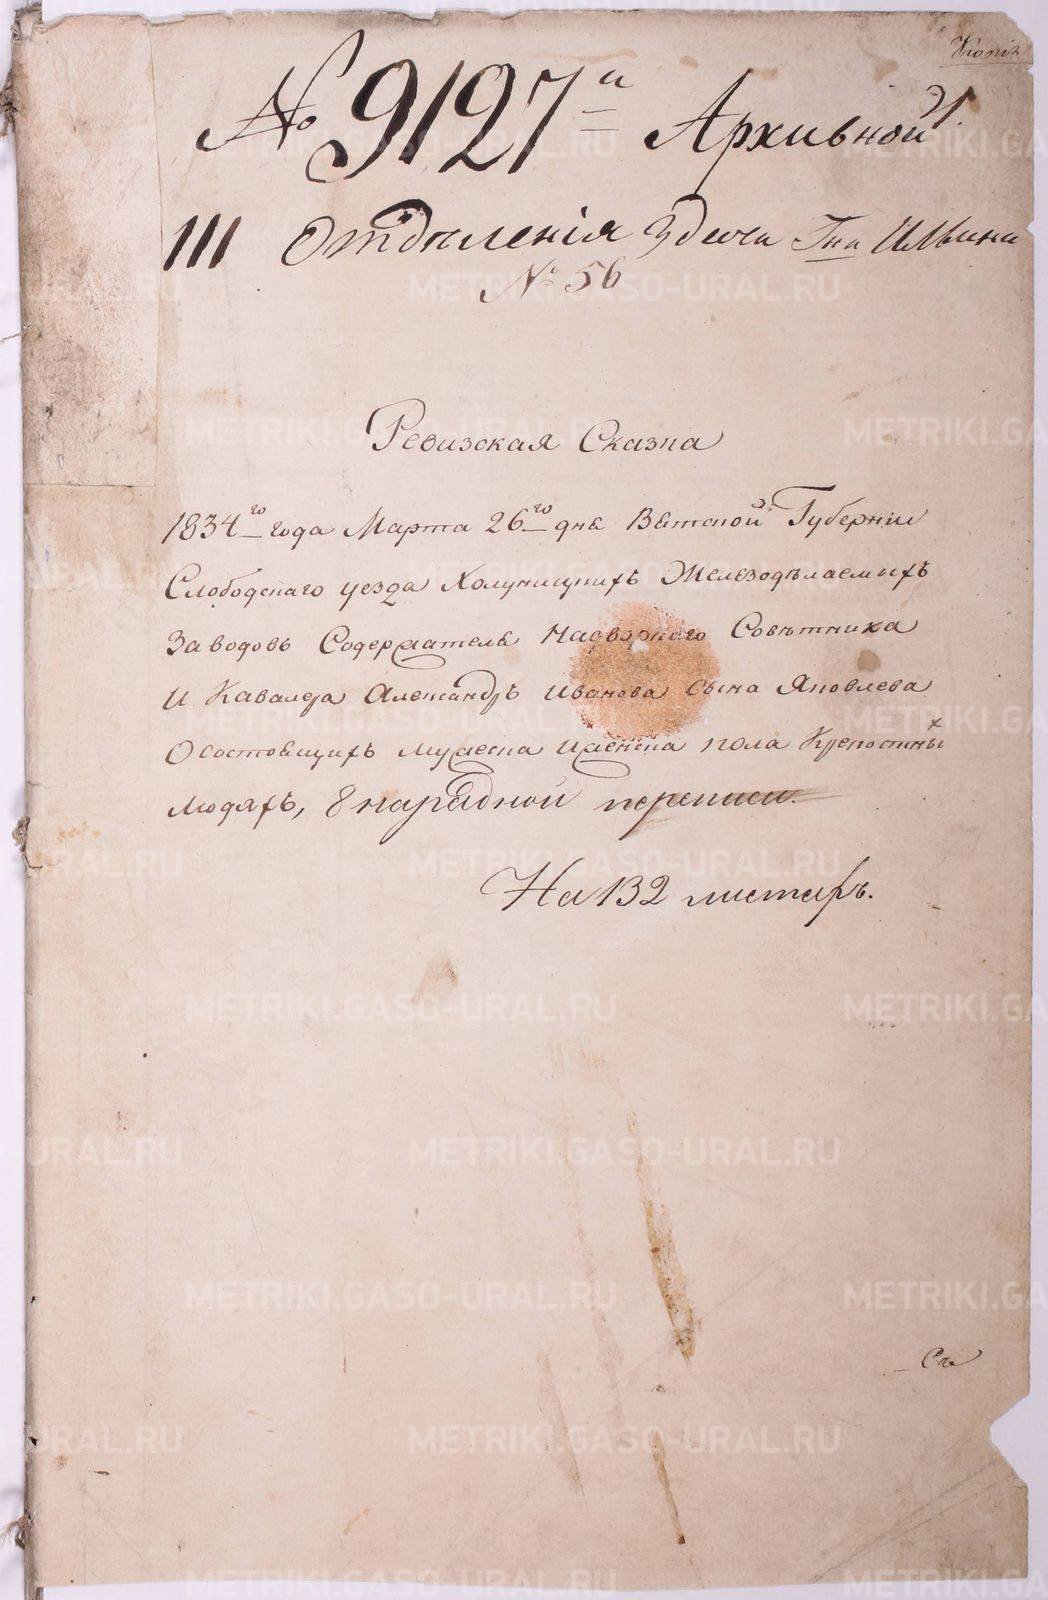 Копія
1.
№ 9127й Архивной
III Отдѣленія Здачи Гна Ильина
№ 56
Ревизская Сказка
1834го года Марта 26го дня Вятской Губернiи
Слободскаго уезда Холуницкихъ Железодѣлаемыхъ
Заводовъ Содержателя Надворного Совѣтника
И Кавалера Александръ Иванова сына Яковлева
О состоящихъ мужеска и женска пола Крепостных
людяхъ, 8 народной переписи.
На 132 листахъ.
METRIKI.GASO-URAL.RU